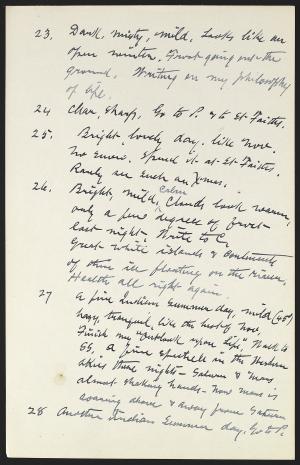 23, Dark, misty, mild. Looks like an
open winter. Frost going out of the
ground. Writing on my philosophy
of life.
24 Clear, sharp. Go to P. & to Et. Faiths.
25. Bright, lovely day, like Nov.
No snow. Spend it at
Rarely an such an Xmas.
26. Bright, mild, calm. Clouds look warm,
only a few degrees of frost
last night. Write to C.
Great white islands & continents
of thin ice floating on the River.
Health all right again.
27 A fine Indian Summer day, mild (45°)
hazy, tranquil, like the best of Nov.
Finish my "Outlook upon Life". Walk to
SS. A fine spectacle in the Western
skies these nights — Saturn & Mars
almost shaking hands — Now Mars is
soaring above & away from Saturn
28 Another Indian Summer day. Go to P.